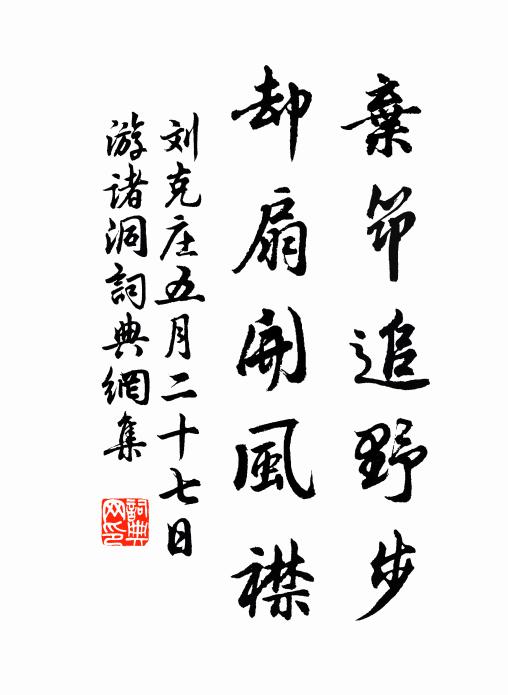 棄笻追野步
却扇開風襟
刘克庄五月二十七日
游诸洞詞典網集
詞典
网印